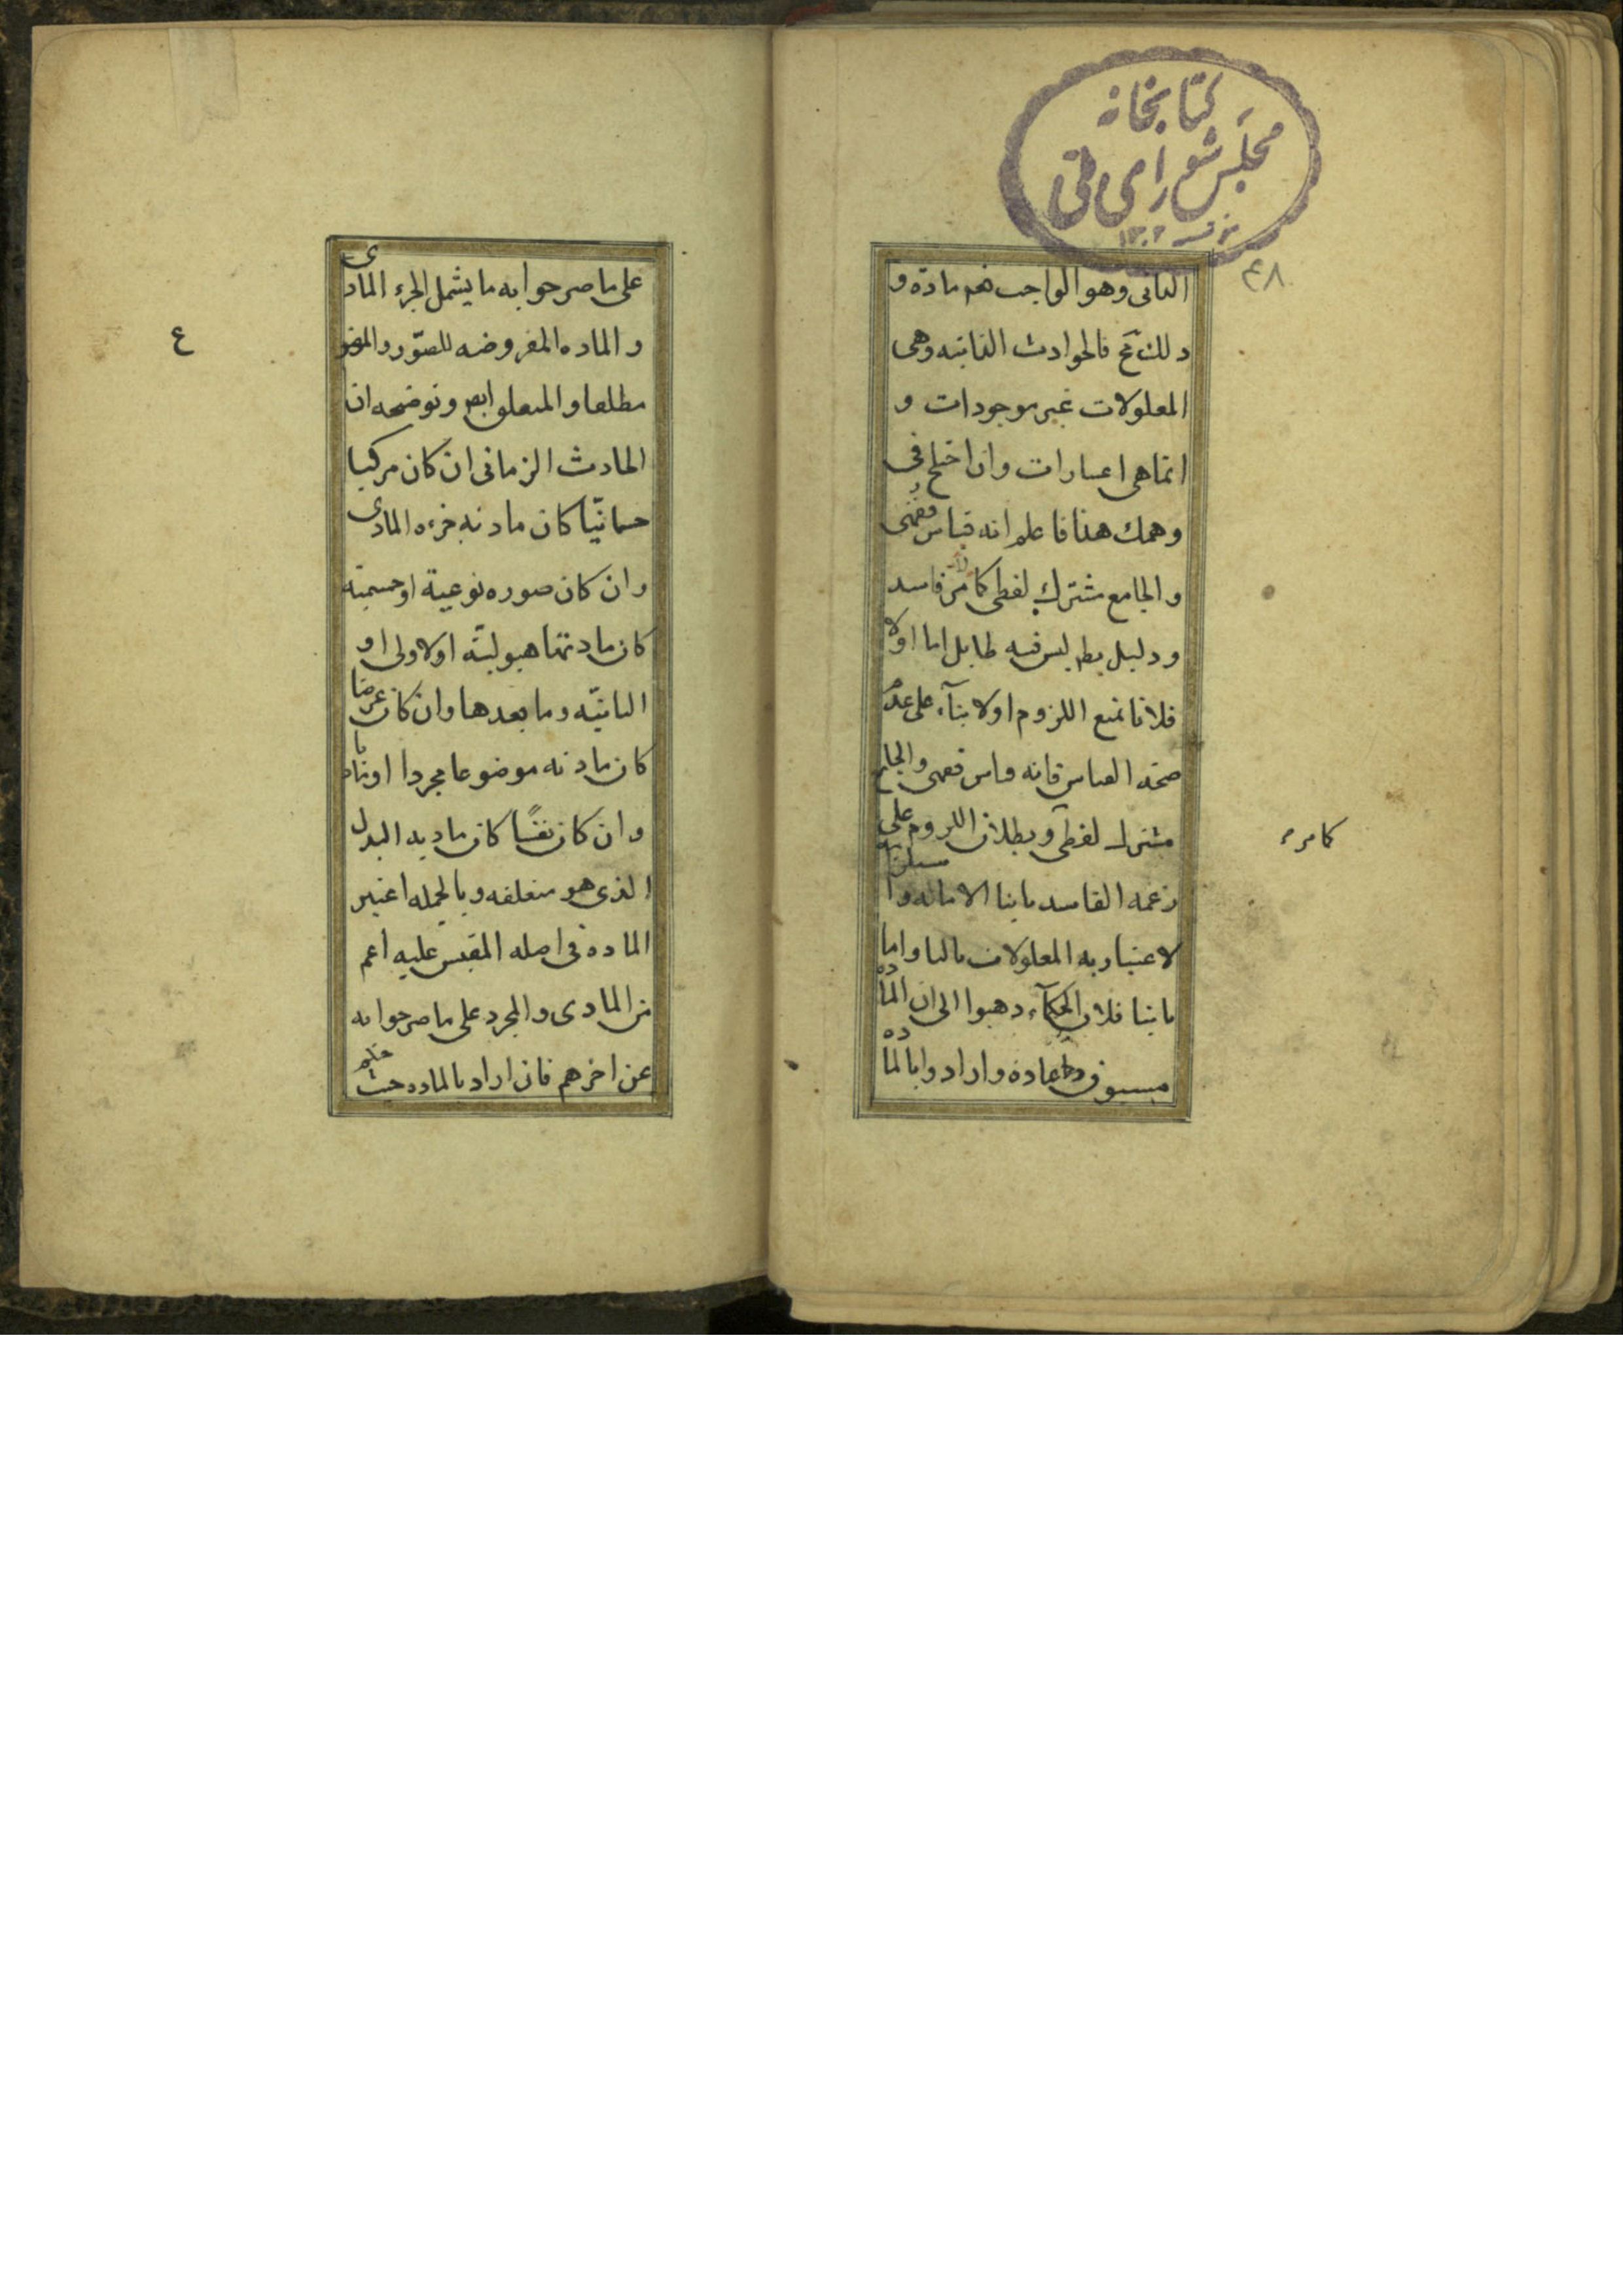 كتابخانه
مجلس شورای ملی
۴۸
الثانی وهو الواجب مادة و
ذلك مح فالحوادث الفانیه وهی
المعلولات غیر موجودات و
انما هی اعتبارات وان اختلج فی
وهمك هذا فاعلم انه قیاس فقهی
والجامع مشترك لفظی كما مر فاسد
ودلیل لیس فیه طایل اما اولا
فلانا نمنع اللزوم اولا بنآء علی عدم
صحة القیاس فانه قیاس فقهی والجامع
مشترك لفظی وبطلان اللزوم علی
زعمه الفاسد ثانیا
لاعتباریه المعلولات ثالثا واما
ثانیا فلان الحكمآء ذهبوا الی ان
مسبوق وارادوا بالمادة
كما مر
علی ما صرحوا به ما یشمل الجزء المادی
والماده المفروضه للصور والموضوع
مطلقا والمتعلق ایض وتوضیحه ان
الحادث الزمانی ان كان مركبا
جسمانیا كان مادته جزءه المادی
وان كان صوره نوعیة او جسمیة
كان مادتها هیولیة الاولی او
الثانیة وما بعدها وان كان عرضا
كان مادته موضوعا مجردا او مادیا
وان كان نفسا كان مادیه البدن
الذی هو متعلقه وبالجمله اعتبر
الماده فی اصله المقیس علیه اعم
من المادی والمجرد علی ما صرحوا به
عن اخرهم فان اراد بالماده حیث
ع